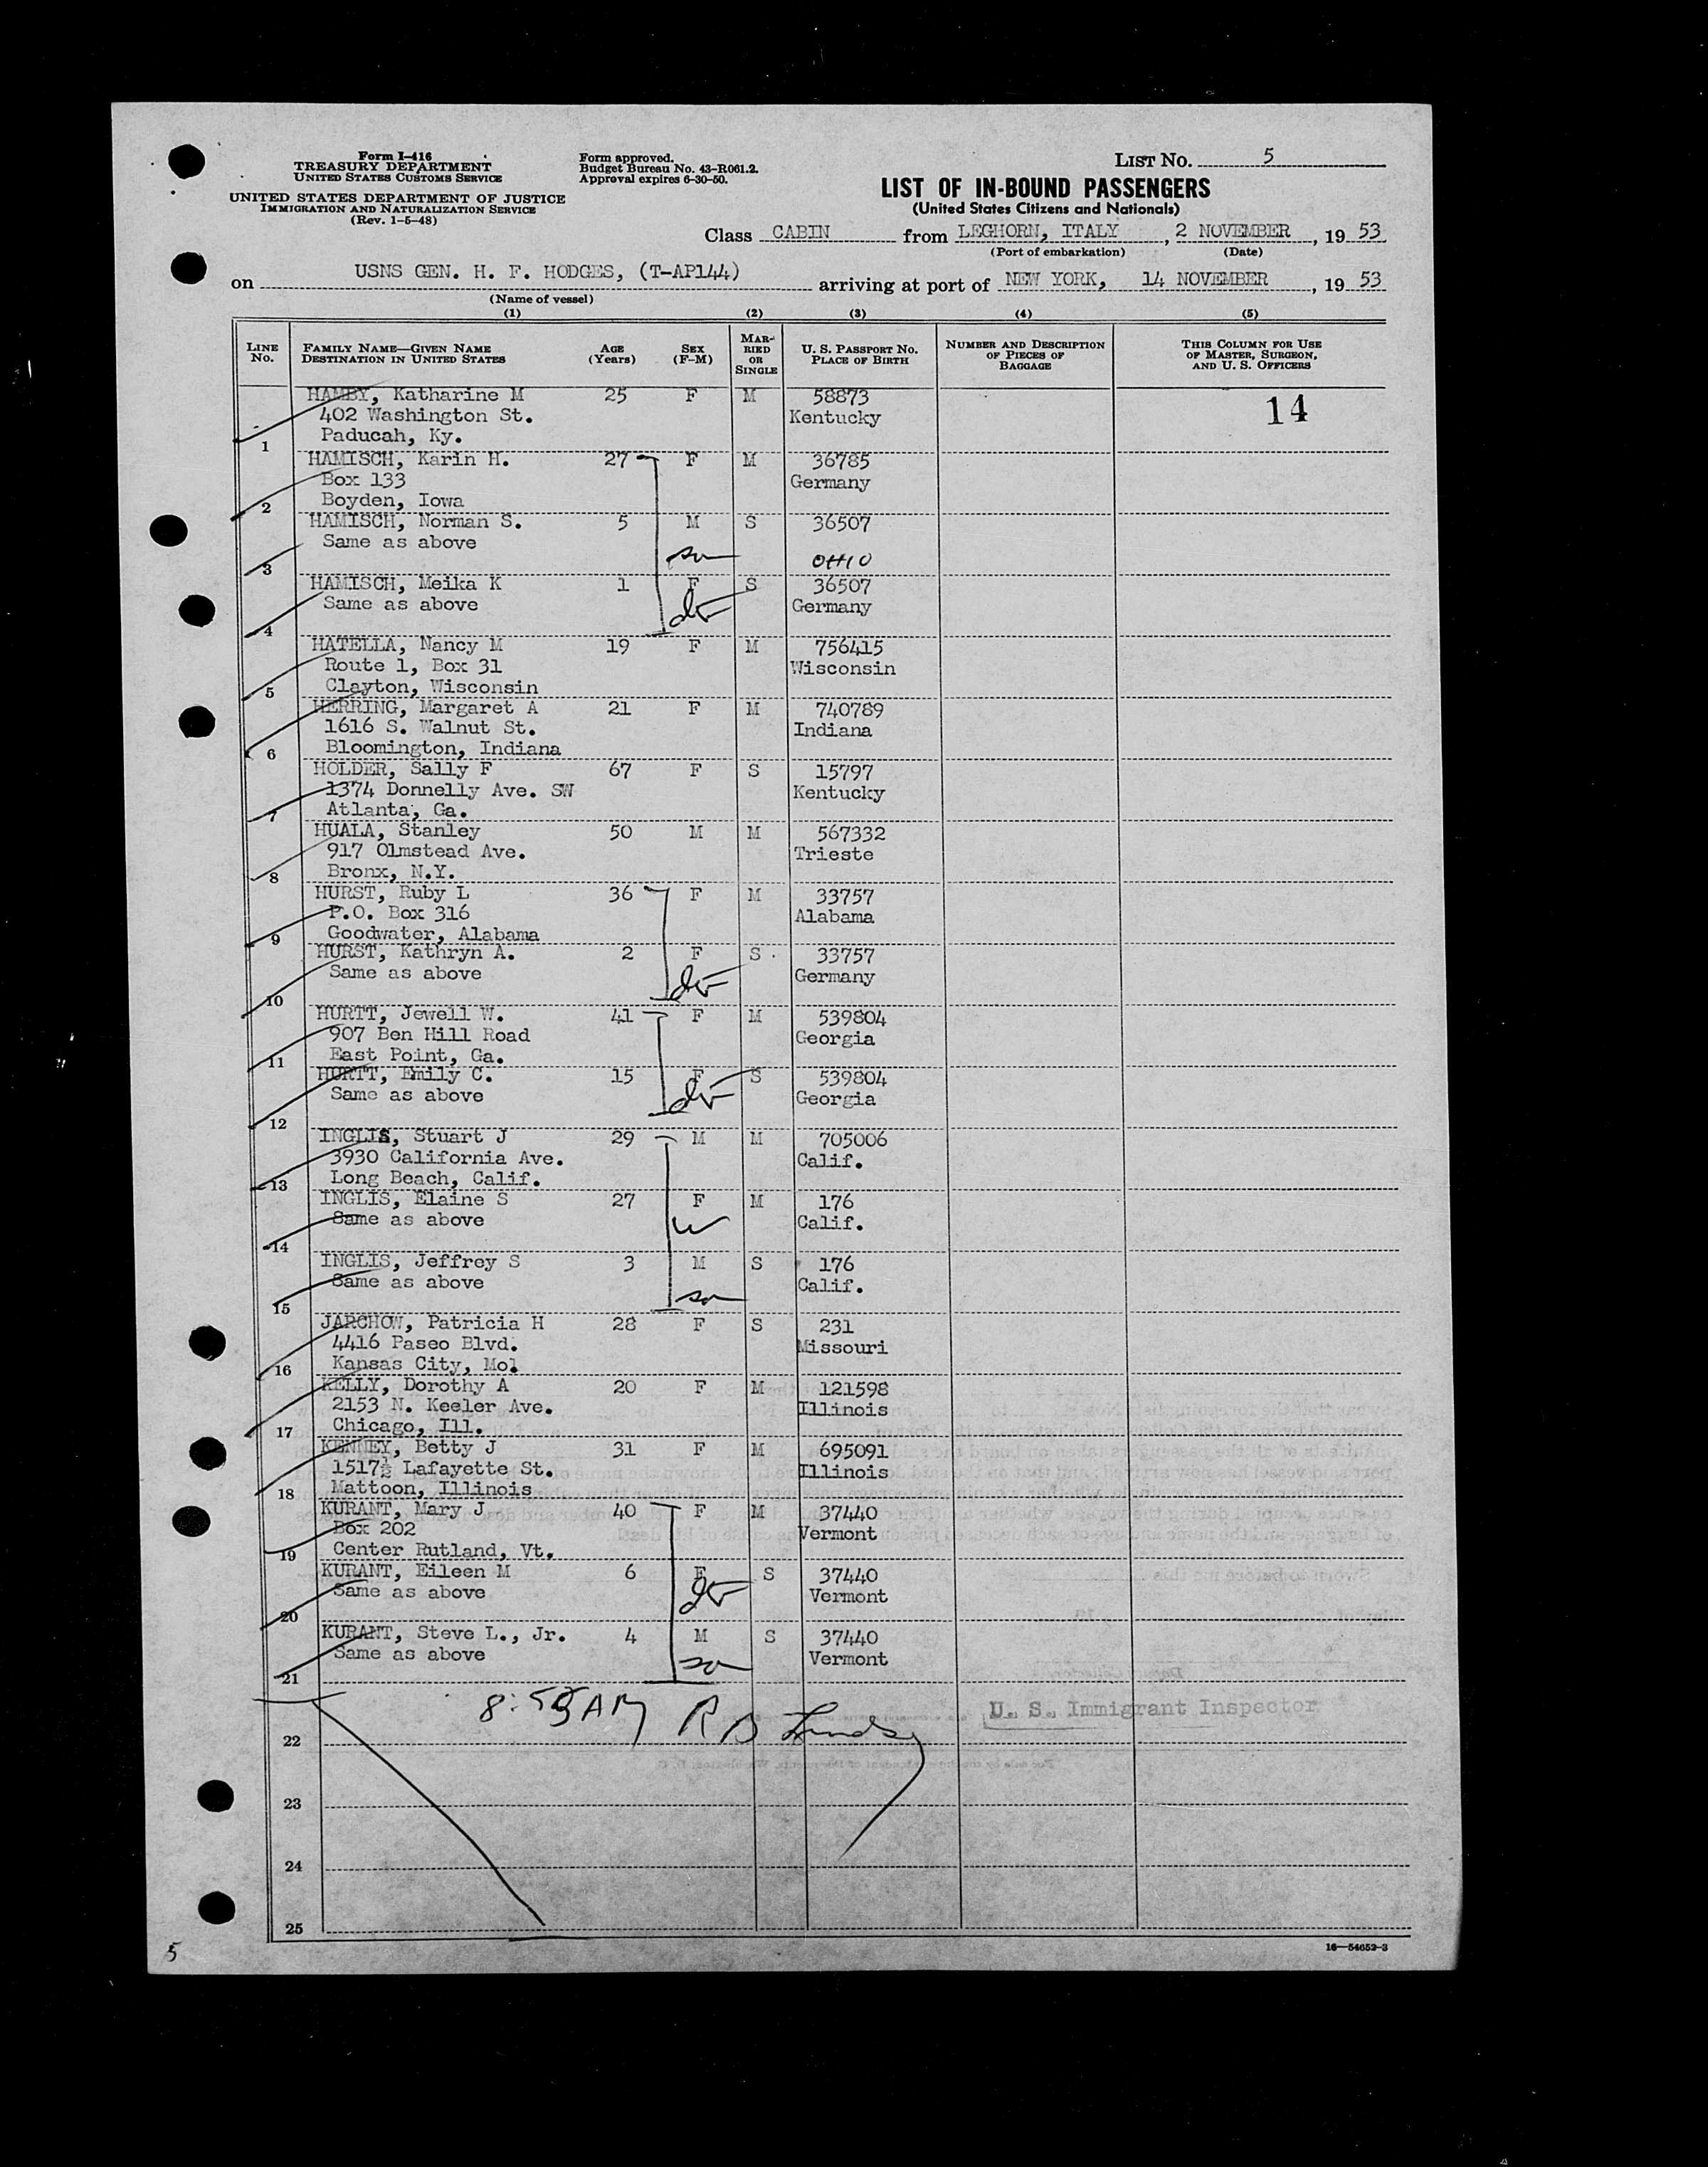 Form I-416
TREASURY DEPARTMENT
UNITED STATES CUSTOMS SERVICE
UNITED STATES DEPARTMENT OF JUSTICE
IMMIGRATION AND NATURALIZATION SERVICE
(Rev. 1-5-48)
Form approved.
Budget Bureau No. 43-R061.2.
Approval expires 6-30-50.
LIST No. 5
LIST OF IN-BOUND PASSENGERS
(United States Citizens and Nationals)
Class CABIN from LEGHORN, ITALY, 2 NOVEMBER, 19 53
(Port of embarkation) (Date)
on USNS GEN. H. F. HODGES, (T-AP144) arriving at port of NEW YORK, 14 NOVEMBER, 19 53
(Name of vessel)
(1) (2) (3) (4) (5)
LINE No. FAMILY NAME—GIVEN NAME DESTINATION IN UNITED STATES AGE (Years) SEX (F-M) MARRIED OR SINGLE U. S. PASSPORT No. PLACE OF BIRTH NUMBER AND DESCRIPTION OF PIECES OF BAGGAGE THIS COLUMN FOR USE OF MASTER, SURGEON, AND U. S. OFFICERS
HAMBY, Katharine M 25 F M 58873
402 Washington St. Kentucky 14
Paducah, Ky.
1
HAMISCH, Karin H. 27 F M 36785
Box 133 Germany
Boyden, Iowa
2
HAMISCH, Norman S. 5 M S 36507
Same as above
son OHIO
3
HAMISCH, Meika K 1 F S 36507
Same as above Germany
4
HATELLA, Nancy M 19 F M 756415
Route 1, Box 31 Wisconsin
Clayton, Wisconsin
5
HERRING, Margaret A 21 F M 740789
1616 S. Walnut St. Indiana
Bloomington, Indiana
6
HOLDER, Sally F 67 F S 15797
1374 Donnelly Ave. SW Kentucky
Atlanta, Ga.
7
HUALA, Stanley 50 M M 567332
917 Olmstead Ave. Trieste
Bronx, N.Y.
8
HURST, Ruby L 36 F M 33757
P.O. Box 316 Alabama
Goodwater, Alabama
9
HURST, Kathryn A. 2 F S 33757
Same as above Germany
10
HURTT, Jewell W. 41 F M 539804
907 Ben Hill Road Georgia
East Point, Ga.
11
HURTT, Emily C. 15 F S 539804
Same as above Georgia
12
INGLIS, Stuart J 29 M M 705006
3930 California Ave. Calif.
Long Beach, Calif.
13
INGLIS, Elaine S 27 F M 176
Same as above w Calif.
14
INGLIS, Jeffrey S 3 M S 176
Same as above Calif.
son
15
JARCHOW, Patricia H 28 F S 231
4416 Paseo Blvd. Missouri
Kansas City, Mo.
16
KELLY, Dorothy A 20 F M 121598
2153 N. Keeler Ave. Illinois
Chicago, Ill.
17
KENNEY, Betty J 31 F M 695091
1517½ Lafayette St. Illinois
Mattoon, Illinois
18
KURANT, Mary J 40 F M 37440
Box 202 Vermont
Center Rutland, Vt.
19
KURANT, Eileen M 6 F S 37440
Same as above Vermont
20
KURANT, Steve L., Jr. 4 M S 37440
Same as above son Vermont
21
8:55 AM R B Lindsy U. S. Immigrant Inspector
22
23
24
25
16—54652-3
5